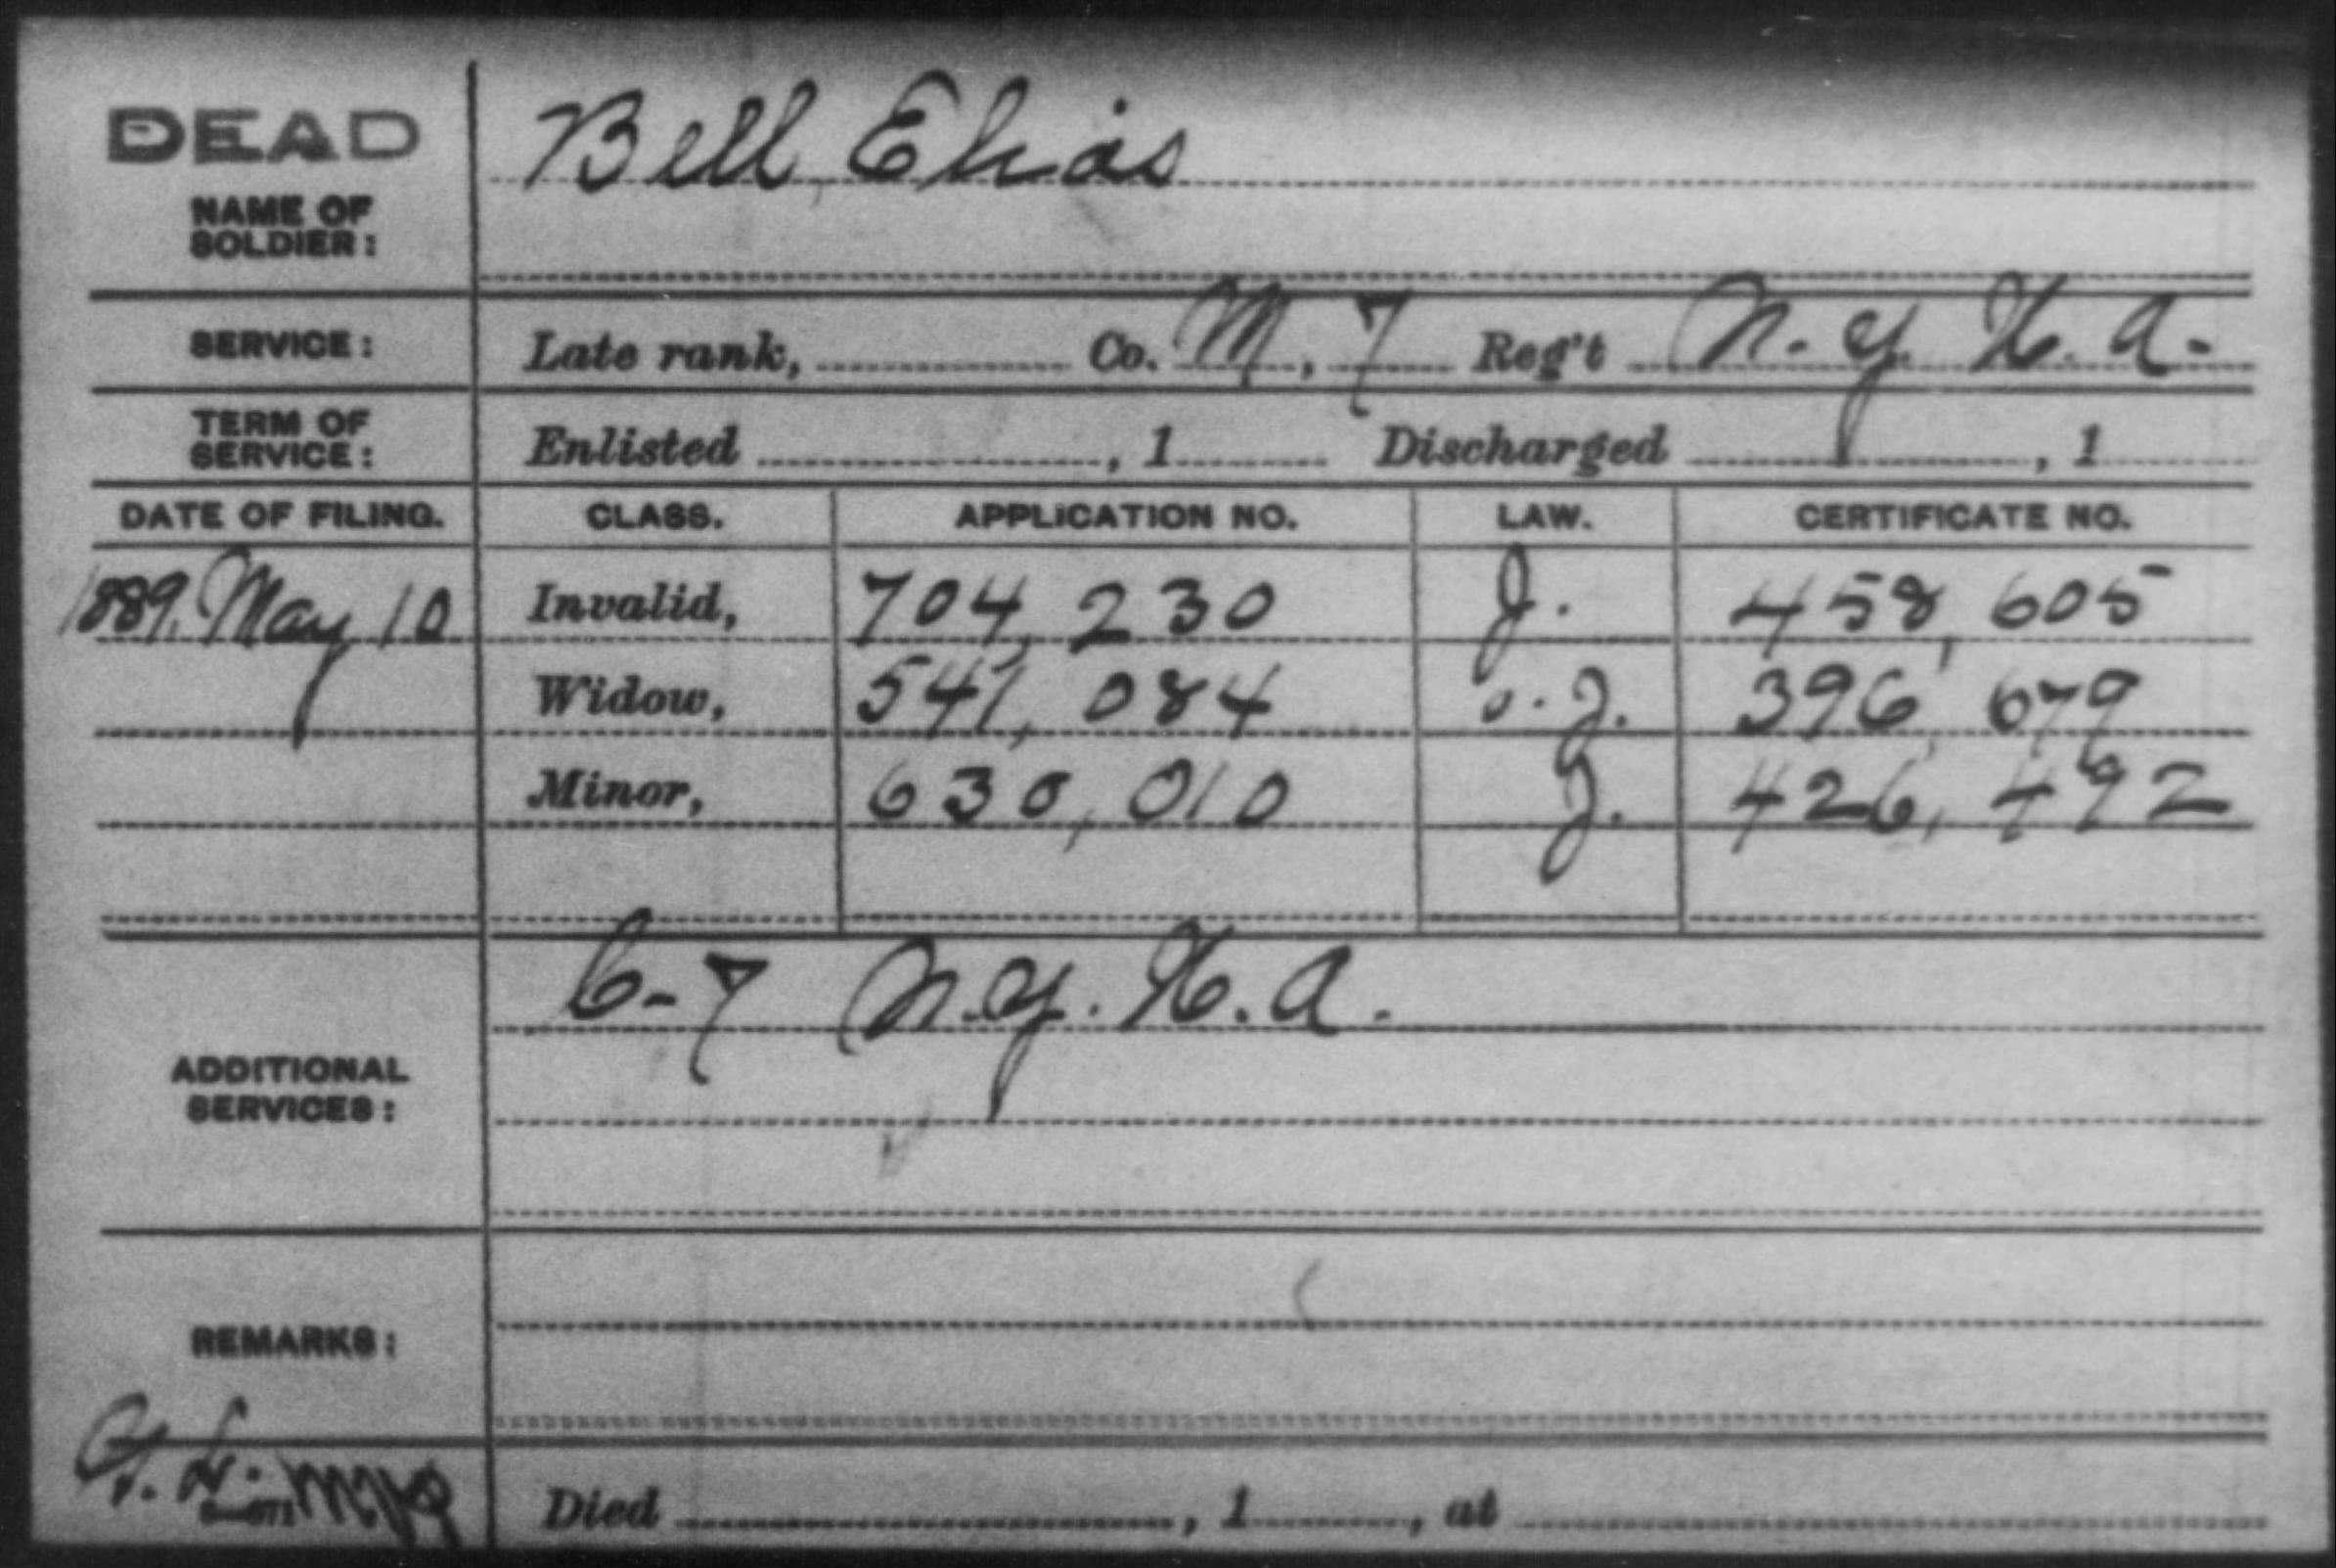 DEAD
Bell, Elias
NAME OF
SOLDIER:
SERVICE: Late rank, Co. M, 7 Reg't N.Y. H.A.
TERM OF
SERVICE: Enlisted , 1 Discharged , 1
DATE OF FILING. CLASS. APPLICATION NO. LAW. CERTIFICATE NO.
1889, May 10 Invalid, 704,230 J. 458,605
Widow, 541,084 J. 396,679
Minor, 630,010 J. 426,492
C-7 N.Y. H.A.
ADDITIONAL
SERVICES:
REMARKS:
Died , 1 , at